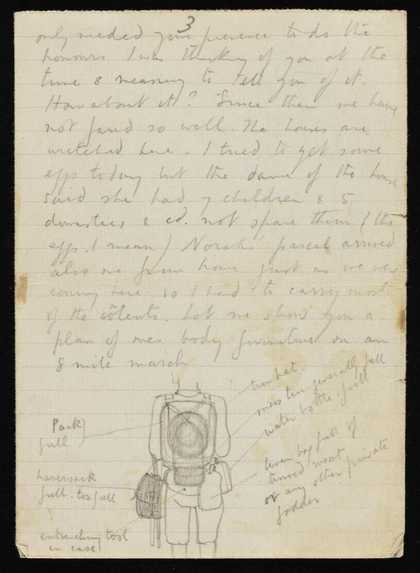 3
only needed your presence to do the
honours. I was thinking of you at the
time & meaning to tell you of it.
How about it? Since then we have
not fared so well. The houses are
wretched here. I tried to get some
eggs today but the dame of the house
said she had 7 children & 5
domestics & cd. not spare them (the
eggs I mean) Norah's parcel arrived
also one from home just as we were
coming here so I had to carry most
of the contents. Let me show you a
plan of ones body furniture on an
8 mile march
Pack
full
haversack
full. too full
entrenching tool
in case
tin hat
mess tin generally full
water bottle full
linen bag full of
tinned meat
or any other private
fodder